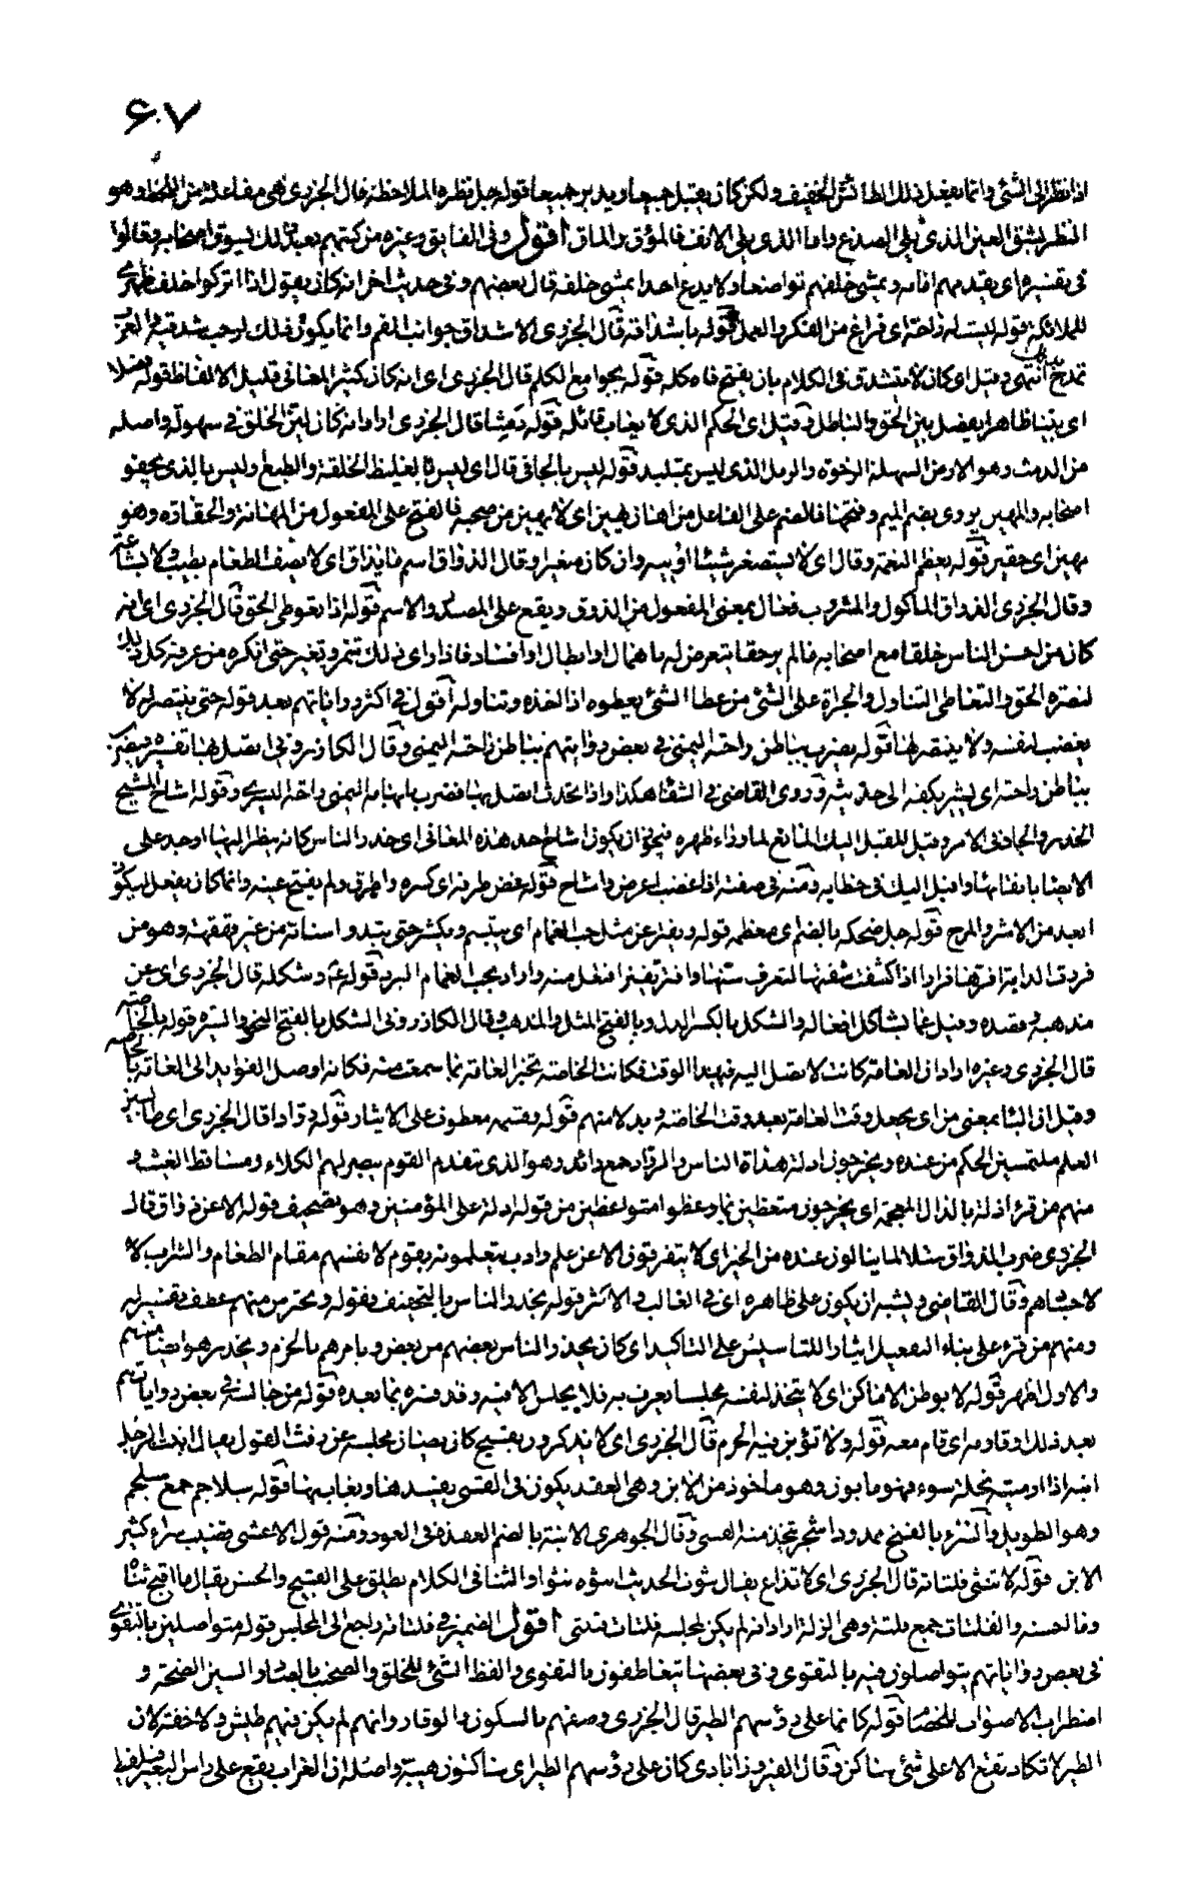 ۶۰۷
اذا نظر الى الشئ وانما يفعل ذلك الطائش الخفيف ولكن كان يقبل جميعا ويدبر جميعا قوله جل نظره الملاحظة قال الجزرى هى مفاعلة من اللحظ وهو
النظر بشق العين الذى يلى الصدغ واما الذى يلى الانف فالموق والماق اقول وفى الفايق وغيره من كتبهم بعد ذلك يسوق اصحابه وقالوا
فى تفسيره اى يقدمهم امامه ويمشى خلفهم تواضعا ولا يدع احدا يمشى خلفه قال بعضهم وفى حديث اخر انه كان يقول اتركوا خلف ظهرى
للملائكة قوله ليست له راحة اى فراغ من الفكر والعمل قوله باشداقه قال الجزرى الاشداق جوانب الفم وانما يكون ذلك لرحب شدقيه والعرب
تمدح بذلك انتهى وقيل اى كان لا يتشدق فى الكلام بان يفتح فاه كله قوله بجوامع الكلم قال الجزرى اى انه كان كثير المعانى قليل الالفاظ قوله فصلا
اى بينا ظاهرا يفصل بين الحق والباطل وقيل اى الحكم الذى لا يعاب قائله قوله دمثا قال الجزرى اراد انه كان لين الخلق فى سهولة واصله
من الدمث وهو الارض السهلة الرخوة والرمل الذى ليس بمتلبد قوله ليس بالجافى قال اى ليس بالغليظ الخلقة والطبع وليس بالذى يجفو
اصحابه والمهين يروى بضم الميم وفتحها فالضم على الفاعل من اهان يهين اى لا يهين من صحبه فالفتح على المفعول من المهانة والحقارة وهو
مهين اى حقير قوله يعظم النعمة وقال اى لا يستصغر شيئا اوتيه وان كان صغيرا وقال الذواق اسم ما يذاق اى لا يصف الطعام بطيب ولا بشاعة
وقال الجزرى الذواق المأكول والمشروب فعال بمعنى المفعول من الذوق ويقع على المصدر والاسم قوله اذا تعوطى الحق قال الجزرى اى انه
كان من احسن الناس خلقا مع اصحابه مالم ير حقا يتعرض له باهمال او ابطال او افساد فاذا راى ذلك تنمر وتغير حتى انكره من عرفه كل ذلك
لنصرة الحق والتعاطى التناول والجرأة على الشئ من عطا الشئ يعطوه اذا اخذه وتناوله اقول فى اكثر رواياتهم بعد قوله حتى ينتصر له لا
يغضب لنفسه ولا ينتصر لها قوله يضرب بباطن راحته اليمنى فى بعض رواياتهم بباطن راحته اليمنى وقال الكازرونى اتصل بها تفسيره فيضرب
بباطن راحته اى يشير بكفه الى حديثه وروى القاضى فى الشفا هكذا واذا تحدث اتصل بها فضرب بابهامه اليمنى راحته اليسرى وقوله اشاح المشيح
الحذر والجاد فى الامر وقيل المقبل اليك المانع لما وراء ظهره فيجوز ان يكون اشاح احد هذه المعانى اى حذر والناس كانه ينظر اليها او جد على
الايصاء باتقائها او اقبل اليك فى خطابه ومنه فى صفته اذا غضب اعرض واشاح قوله غض طرفه اى كسره واطرق ولم يفتح عينه وانما كان يفعل ليكون
ابعد من الاشر والمرح قوله جل ضحكه بالضم اى معظمه قوله ويفتر عن مثل حب الغمام اى يتبسم ويكشر حتى تبدو اسنانه من غير قهقهة وهو من
فررت الدابة افرها فرا اذا كشفت شفتها لتعرف سنها وافتر يفتر افتعل منه واراد بحب الغمام البرد قوله عن شكله قال الجزرى اى عن
مذهبه وقصده وقيل عما يشاكل افعاله والشكل بالكسر الدل وبالفتح المثل والمذهب وقال الكازرونى الشكل بالفتح النحو والسيرة قوله بالخاصة
قال الجزرى وغيره اراد ان العامة كانت لا تصل اليه فى هذا الوقت فكانت الخاصة تخبر العامة بما سمعت منه فكانه اوصل الفوايد الى العامة بالخاصة
وقيل ان الباء بمعنى من اى يجعل وقت العامة بعد وقت الخاصة وبدلا منهم قوله وقسمه معطوف على الايثار قوله روادا قال الجزرى اى طالبين
العلم ملتمسين الحكم من عنده ويخرجون ادلة هداة الناس والرواد جمع رائد وهو الذى يتقدم القوم يبصر لهم الكلاء ومساقط الغيث و
منهم من قرء اذلة بالذال المعجمة اى يخرجون متعظين بما وعظوا متواضعين من قوله اذلة على المؤمنين وهو تصحيف قوله الا عن ذواق قال
الجزرى ضرب الذواق مثلا لما ينالون عنده من الخير اى لا يتفرقون الا عن علم وادب يتعلمونه يقوم لانفسهم مقام الطعام والشراب لا
لاجسامهم وقال القاضى ويشبه ان يكون على ظاهره اى فى الغالب والاكثر قوله يحذر الناس بالتخفيف وقوله ويحترس منهم عطف تفسير له
ومنهم من قرء على بناء التفعيل ايثارا للتأسيس على التاكيد اى كان يحذر الناس بعضهم من بعض ويأمرهم بالحزم ويحذر هو ايضا منهم
والاول اظهر قوله لا يوطن الاماكن اى لا يتخذ لنفسه مجلسا يعرف به فلا يجلس الا فيه وقد فسره بما بعده قوله من جالسه فى بعض رواياتهم
بعد ذلك او قاومه اى قام معه قوله ولا تؤبن فيه الحرم قال الجزرى اى لا يذكرن بقبيح كان يصان مجلسه عن رفث القول يقال ابنت الرجل
ابنه اذا رميته بخلة سوء فهو مابون وهو مأخوذ من الابن وهى العقد يكون فى القسى يفسدها ويعاب بها قوله سلاجم جمع سلجم
وهو الطويل والسراء بالفتح ممدودا شجر يتخذ منه القسى وقال الجوهرى الابنة بالضم العقدة فى العود ومنه قول الاعشى قضيب سراء كثير
الابن قوله لا تنثى فلتاته قال الجزرى اى لا تذاع يقال نثوت الحديث انثوه نثوا والنثا فى الكلام يطلق على القبيح والحسن يقال ما اقبح نثاه
وما احسنه والفلتات جمع فلتة وهى الزلة اراد انه لم يكن لمجلسه فلتات فتنثى اقول الضمير فى فلتاته راجع الى المجلس قوله متواصلين بالتقوى
فى بعض رواياتهم يتواصلون فيه بالتقوى وفى بعضها يتعاطفون بالتقوى والفظ السئ الخلق والصخب بالصاد والسين الضجة و
اضطراب الاصوات للخصام قوله كانما على رؤسهم الطير قال الجزرى وصفهم بالسكون والوقار وانهم لم يكن فيهم طيش ولا خفة لان
الطير لا تكاد تقع الا على شئ ساكن وقال الفيروزابادى كان على رؤسهم الطير اى ساكنون هيبة واصله ان الغراب يقع على راس البعير فيلقط